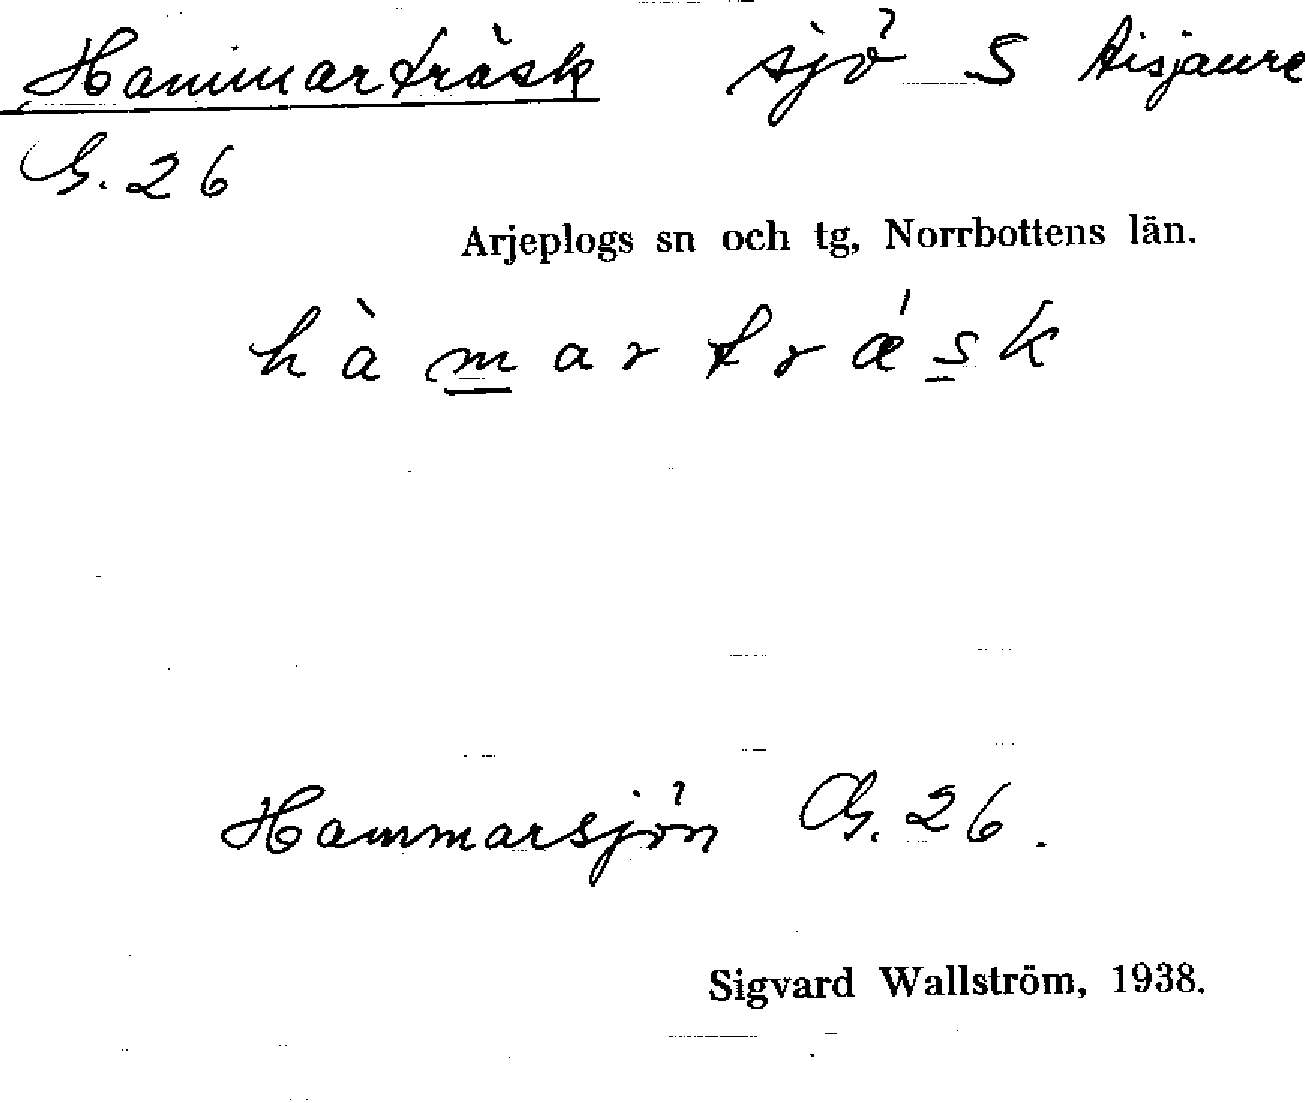 Hammarträsk sjö S Aisjaure
G. 26
Arjeplogs sn och tg, Norrbottens län.
hàmartrǽsk
Hammarsjön G. 26.
Sigvard Wallström, 1938.